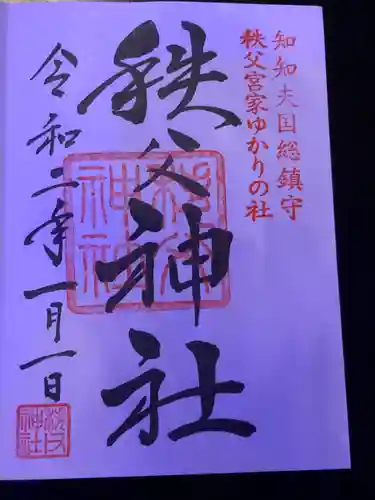 知知夫国総鎮守
秩父宮家ゆかりの社
秩父神社
令和二年一月一日
秩父神社